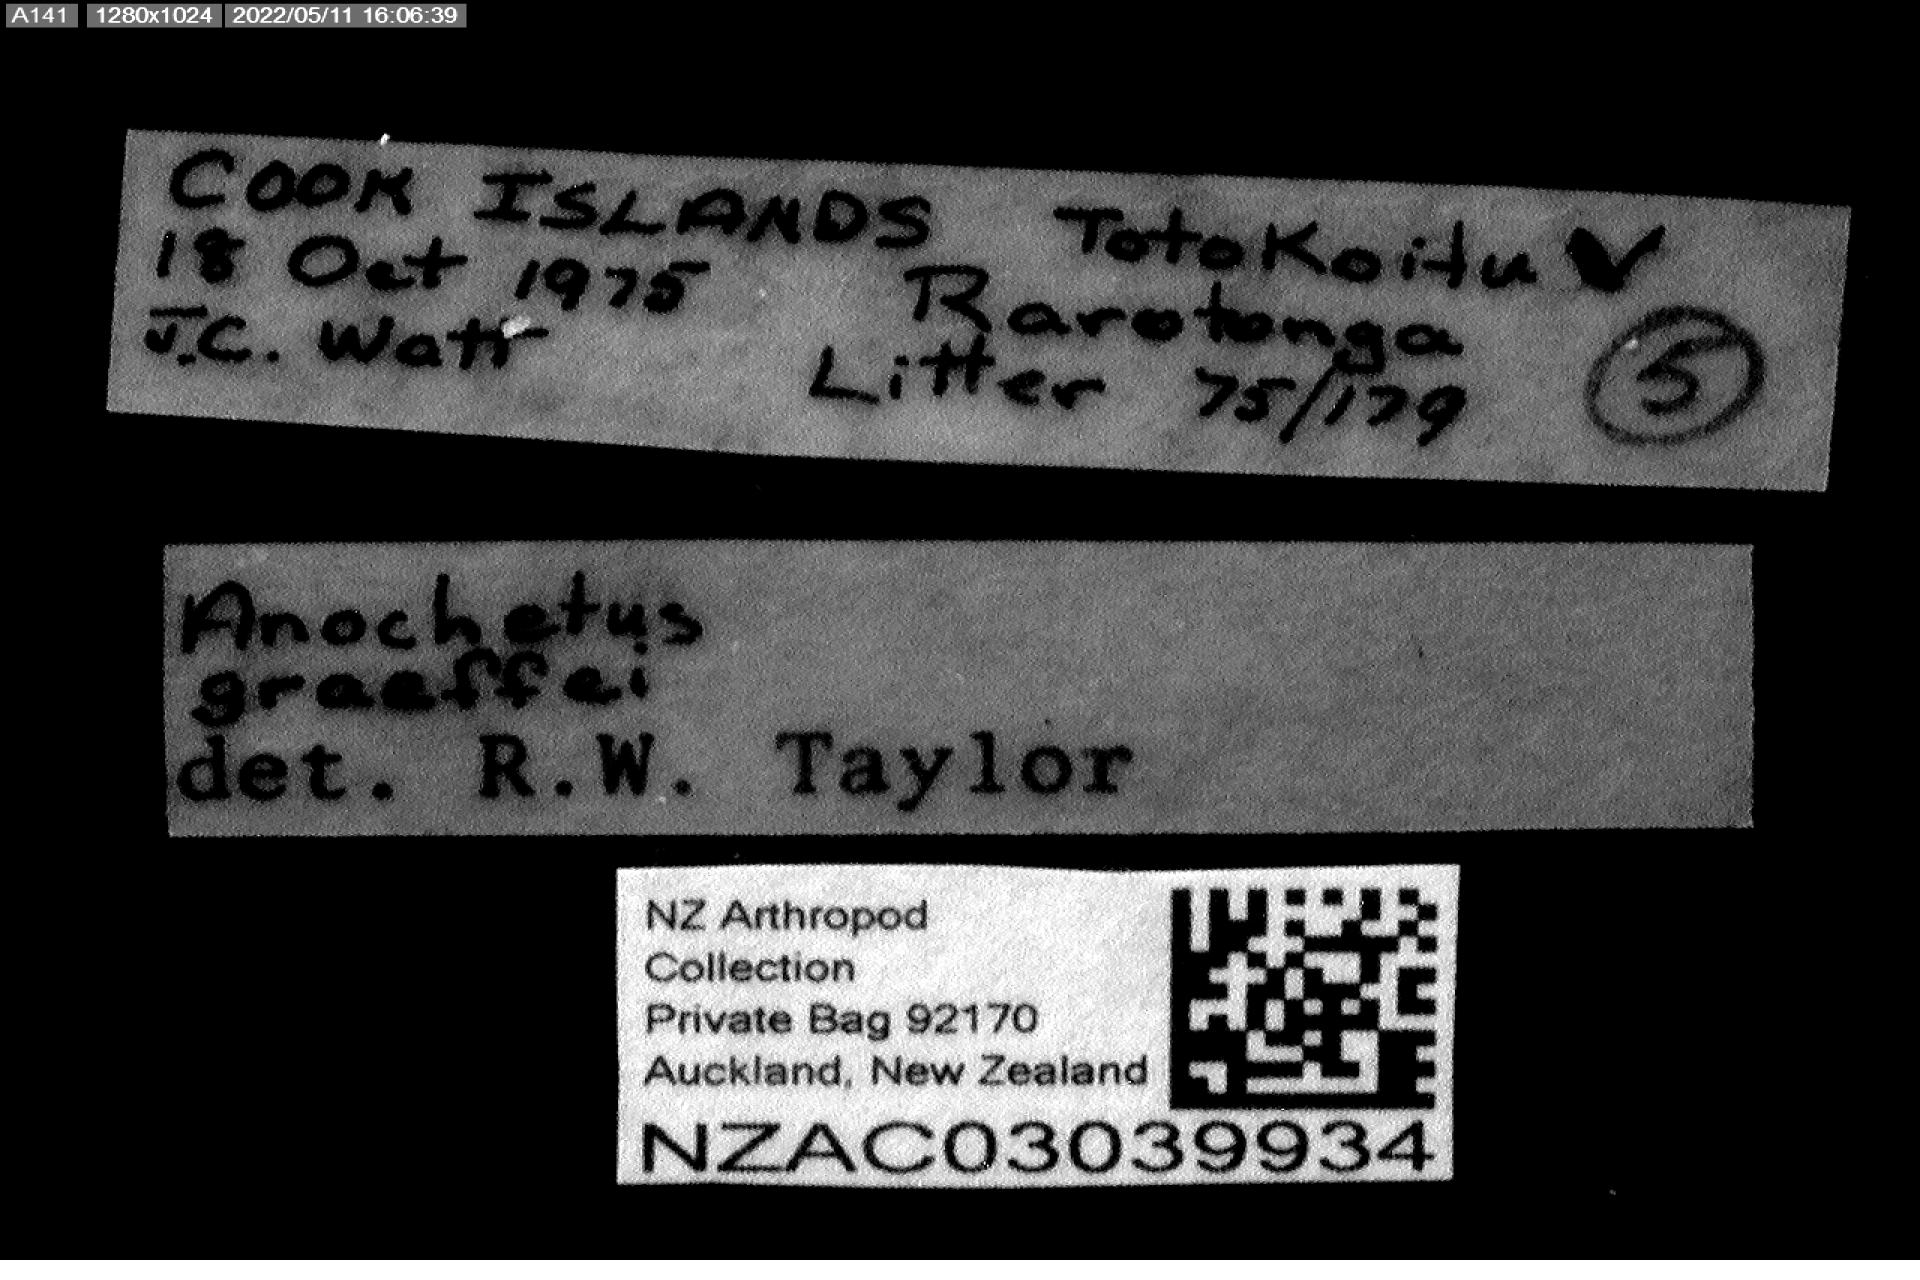 A141 1280x1024 2022/05/11 16:06:39
COOK ISLANDS Totokoitu ✓
18 Oct 1975 Rarotonga
J.C. Watt Litter 75/179 5
Anochetus
graeffei
det. R.W. Taylor
NZ Arthropod
Collection
Private Bag 92170
Auckland, New Zealand
NZAC03039934